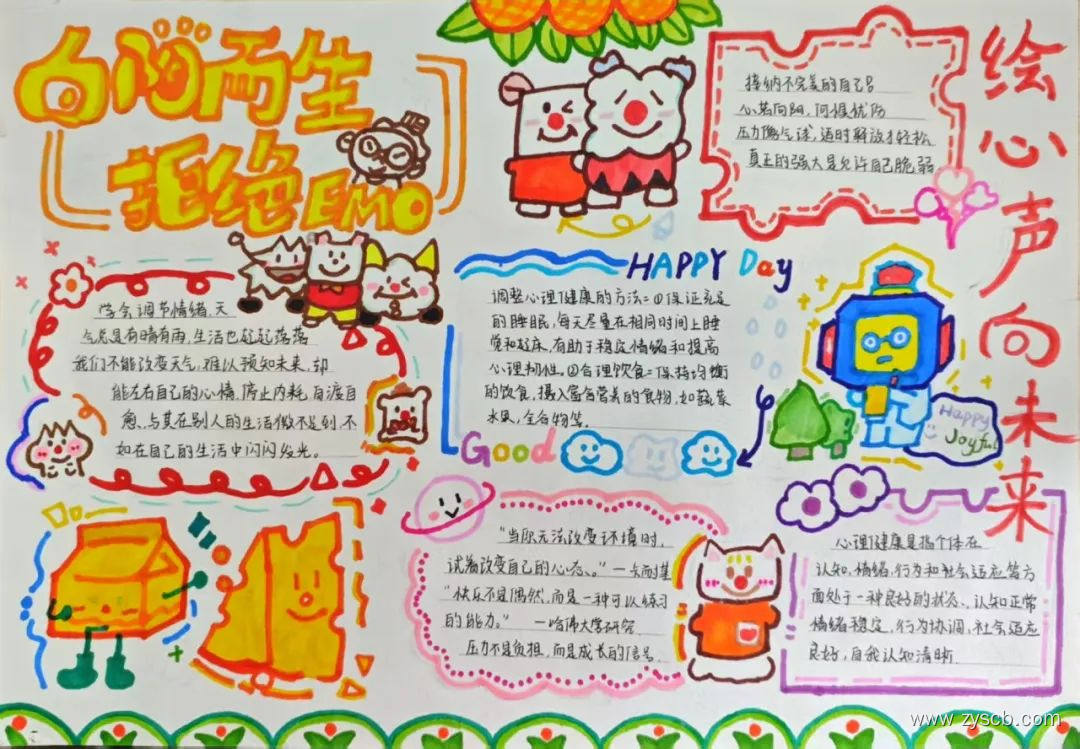 向阳而生
拒绝EMO
接纳不完美的自己
心若向阳,何惧忧伤
压力像气球,适时解放才轻松
真正的强大是允许自己脆弱
绘心声向未来
学会调节情绪,天
气总是有晴有雨,生活也起起落落
我们不能改变天气,难以预知未来,却
能左右自己的心情,停止内耗,自渡自
愈,与其在别人的生活微不足到,不
如在自己的生活中闪闪发光。
HAPPY Day
调整心理健康的方法=①保证充足
的睡眠,每天尽量在相同时间上睡
觉和起床,有助于稳定情绪和提高
心理韧性。②合理饮食=保持均衡
的饮食,摄入富含营养的食物,如蔬菜
水果,全谷物等.
Good
Happy
Joyful
"当你无法改变环境时,
试着改变自己的心态。"—尖耐基
"快乐不是偶然,而是一种可以练习
的能力。" —哈佛大学研究
压力不是负担,而是成长的信号.
心理健康是指个体在
认知,情绪,行为和社会适应等方
面处于一种良好的状态、认知正常
情绪稳定,行为协调,社会适应
良好,自我认知清晰.
www.zyscb.com